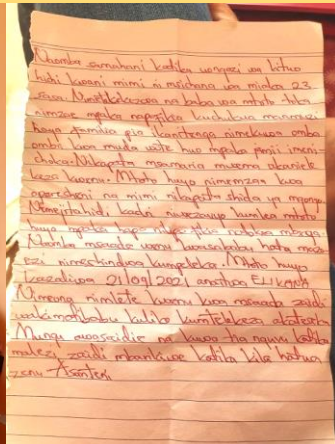 Naomba samahani katika uongozi wa kituo
hiki kwani mimi ni msichana wa miaka 23
sasa. Nimetelekezwa na baba wa mtoto tika
nimzae mpaka napofika kuchukua maamuzi
haya familia pia ikanitenga nimekuwa omba
omba kwa muda wote huo mpaka jamii imeni
choka. Nikapata msamaria mwema akaniele
keza kwenu. Mtoto huyo nimemzaa kwa
oparesheni na mimi nikapata shida ya mgongo
Nimejitahidi kadri niwezavyo kumlea mtoto
huyu mpaka hapo
Naomba msaada wenu kwasababu hata
ezi nimeshindwa kumpeleka Mtoto huyo
kazaliwa 21/09/2021 anaitwa ELIKANA
Nimeona nimlete kwenu kwa msaada zaidi
wakimatibabu kuliko kumtelekeza akateseka
Mungu awasaidie na kuwatia nguvu katika
malezi zaidi mbarikiwe katika kila hatua
zenu Asanteni